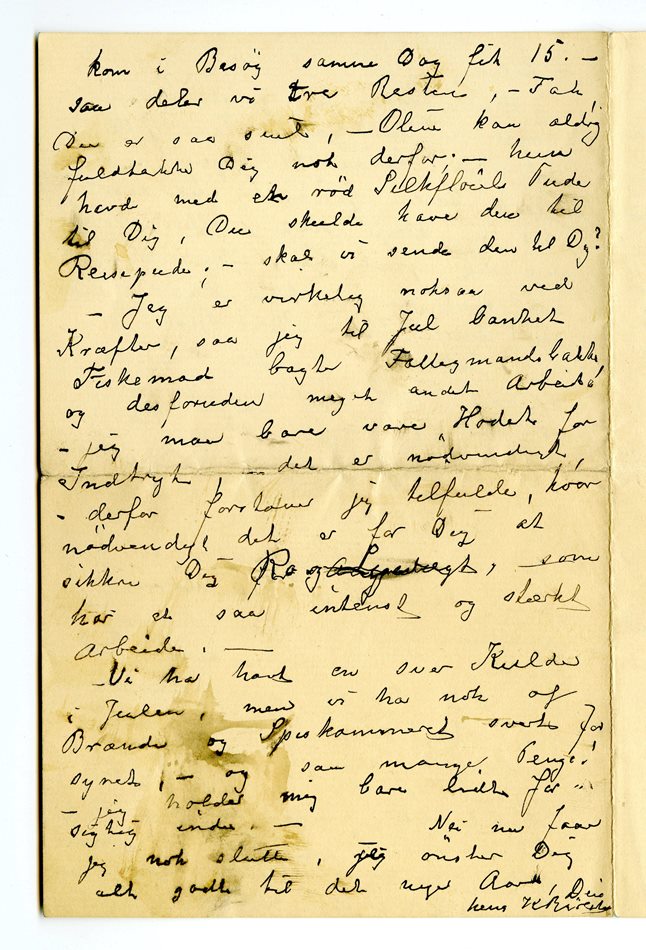 kom i Besøg samme Dag fik 15. –
saa deler vi tre Resten, – Tak,
Du er saa snil, – Oline kan aldrig
fuldtakke Dig nok derfor; – hun
havde med en rød Silkfløiels Pude
til Dig, Du skulde have den til
Reisepude; – skal vi sende den til Dig?
– Jeg er virkelig noksaa ved
Kræfter, saa jeg til Jul banket
Fiskemad bagte Fattigmandsbakkels
og desforuden meget andet Arbeide!
– jeg maa bare vare Hodet for
Indtryk, det er nødvendigt,
– derfor forstaaer jeg tilfulde, hvor
nødvendigt det er for Dig at
sikre Dig Ro og, som
har et saa intenst og stærkt
Arbeide. –
– Vi ha havt en svær Kulde
i Julen, men vi ha nok af
Brænde og Spiskammeret svart for
synet, – og saa mange Penge!
– jeg holder mig bare lidt for-
sigtig inde. – Nei nu faar
jeg nok slutte, jeg ønsker Dig
alt godt til det nye Aar, Din
hens K